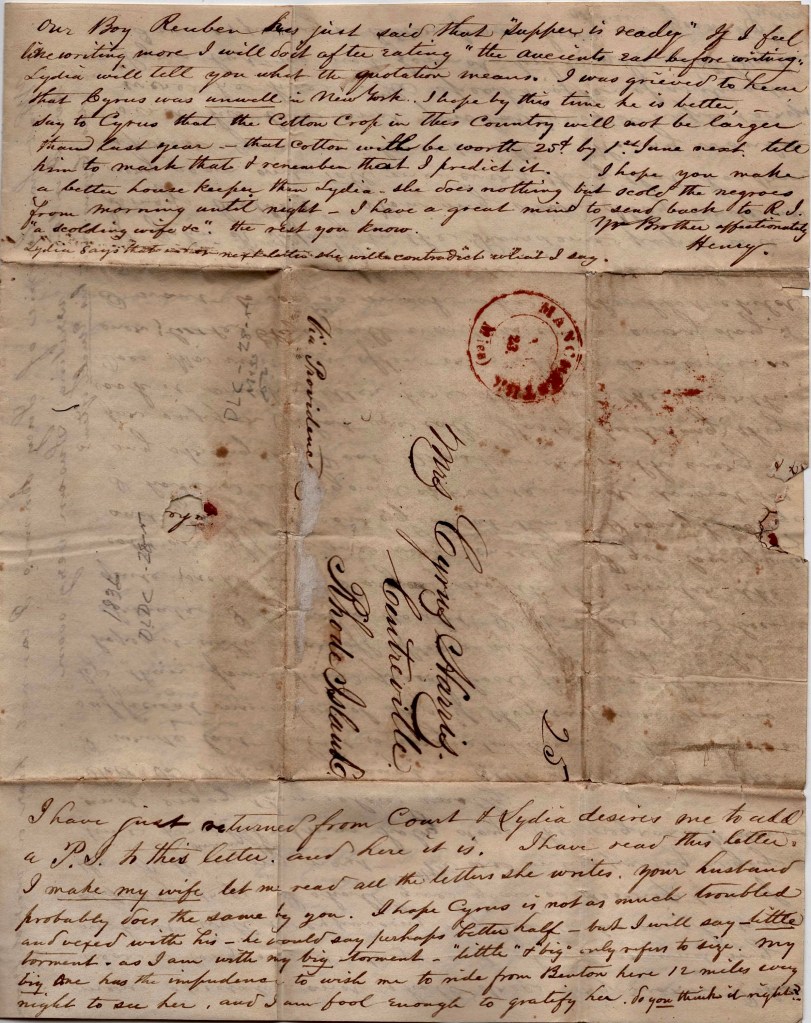 Our Boy Reuben has just said that "supper is ready" If I feel
like writing more I will do it after eating "the ancients eat before writing".
Lydia will tell you what the quotation means. I was grieved to hear
that Cyrus was unwell in New York. I hope by this time he is better, –
say to Cyrus that the Cotton Crop in this Country will not be larger
than last year – that cotton will be worth 25¢ by 1st June next. tell
him to mark that & remember that I predict it. I hope you make
a better house keeper than Lydia – she does nothing but scold the negroes
from morning until night – I have a great mind to send back to R.I.
"a scolding wife &c". the rest you know. Yr Brother affectionately
Henry.
Lydia says that next letter she will contradict what I say.
MANCHESTER
(Miss)
Via Providence
Mrs Cyrus Harris.
Centreville.
Rhode Island.
25
1836
I have just returned from Court & Lydia desires me to add
a P.S. to this letter. and here it is. I have read this letter.
I make my wife let me read all the letters she writes. your husband
probably does the same by you. I hope Cyrus is not as much troubled
and vexed with his – he would say perhaps better half – but I will say – little
torment. as I am with my big torment – "little" & "big" only refers to size. my
big one has the impudence to wish me to ride from Benton here 12 miles every
night to see her, and I am fool enough to gratify her. do you think it right?